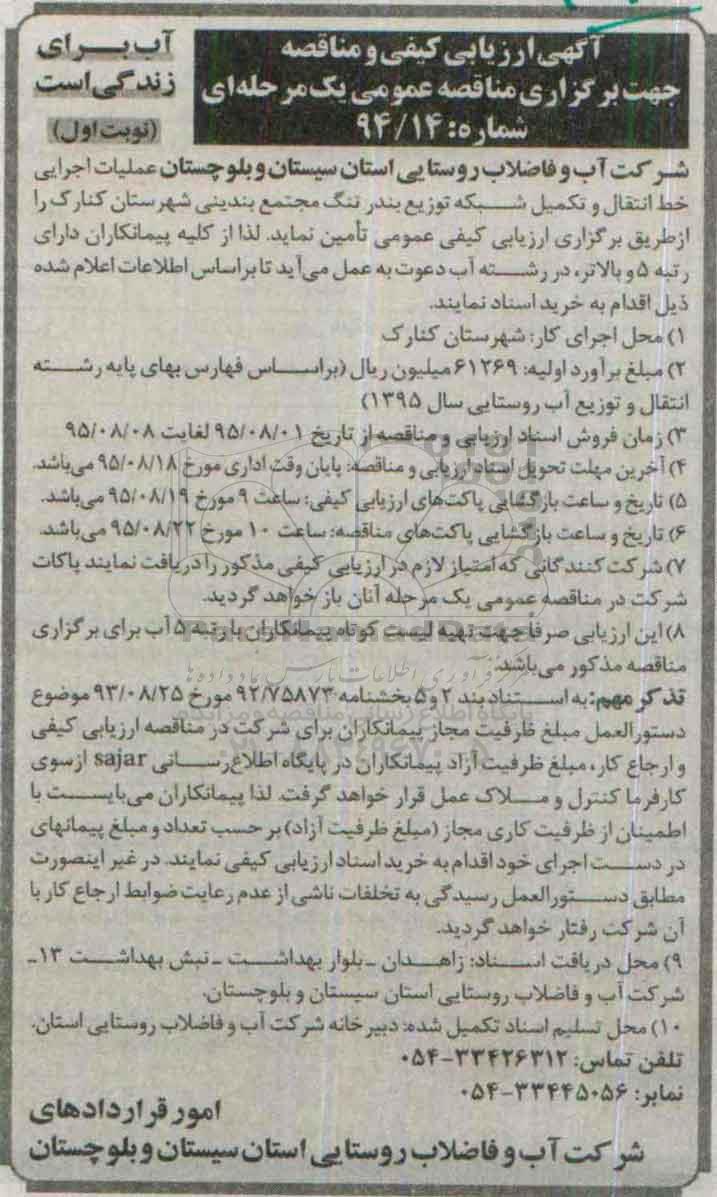 آب برای
زندگی است
(نوبت اول)
آگهی ارزیابی کیفی و مناقصه
جهت برگزاری مناقصه عمومی یک مرحله‌ای
شماره: ۹۴/۱۴
شرکت آب و فاضلاب روستایی استان سیستان و بلوچستان عملیات اجرایی
خط انتقال و تکمیل شبکه توزیع بندر تنگ مجتمع بندینی شهرستان کنارک را
ازطریق برگزاری ارزیابی کیفی عمومی تأمین نماید. لذا از کلیه پیمانکاران دارای
رتبه ۵ و بالاتر، در رشته آب دعوت به عمل می‌آید تا براساس اطلاعات اعلام شده
ذیل اقدام به خرید اسناد نمایند.
۱) محل اجرای کار: شهرستان کنارک
۲) مبلغ برآورد اولیه: ۶۱۲۶۹ میلیون ریال (براساس فهارس بهای پایه رشته
انتقال و توزیع آب روستایی سال ۱۳۹۵)
۳) زمان فروش اسناد ارزیابی و مناقصه از تاریخ ۹۵/۰۸/۰۱ لغایت ۹۵/۰۸/۰۸
۴) آخرین مهلت تحویل اسناد ارزیابی و مناقصه: پایان وقت اداری مورخ ۹۵/۰۸/۱۸ می‌باشد.
۵) تاریخ و ساعت بازگشایی پاکت‌های ارزیابی کیفی: ساعت ۹ مورخ ۹۵/۰۸/۱۹ می‌باشد.
۶) تاریخ و ساعت بازگشایی پاکت‌های مناقصه: ساعت ۱۰ مورخ ۹۵/۰۸/۲۲ می‌باشد.
۷) شرکت کنندگانی که امتیاز لازم در ارزیابی کیفی مذکور را دریافت نمایند پاکات
شرکت در مناقصه عمومی یک مرحله آنان باز خواهد گردید.
۸) این ارزیابی صرفا جهت تهیه لیست کوتاه پیمانکاران با رتبه ۵ آب برای برگزاری
مناقصه مذکور می‌باشد.
تذکر مهم: به استناد بند ۲ و ۵ بخشنامه ۹۲/۷۵۸۷۳ مورخ ۹۳/۰۸/۲۵ موضوع
دستورالعمل مبلغ ظرفیت مجاز پیمانکاران برای شرکت در مناقصه ارزیابی کیفی
و ارجاع کار، مبلغ ظرفیت آزاد پیمانکاران در پایگاه اطلاع‌رسانی sajar ازسوی
کارفرما کنترل و ملاک عمل قرار خواهد گرفت. لذا پیمانکاران می‌بایست با
اطمینان از ظرفیت کاری مجاز (مبلغ ظرفیت آزاد) بر حسب تعداد و مبلغ پیمانهای
در دست اجرای خود اقدام به خرید اسناد ارزیابی کیفی نمایند. در غیر اینصورت
مطابق دستورالعمل رسیدگی به تخلفات ناشی از عدم رعایت ضوابط ارجاع کار با
آن شرکت رفتار خواهد گردید.
۹) محل دریافت اسناد: زاهدان ـ بلوار بهداشت ـ نبش بهداشت ۱۳ـ
شرکت آب و فاضلاب روستایی استان سیستان و بلوچستان.
۱۰) محل تسلیم اسناد تکمیل شده: دبیرخانه شرکت آب و فاضلاب روستایی استان.
تلفن تماس: ۳۳۴۲۶۳۱۲-۰۵۴
نمابر: ۳۳۴۴۵۰۵۶-۰۵۴
امور قراردادهای
شرکت آب و فاضلاب روستایی استان سیستان و بلوچستان